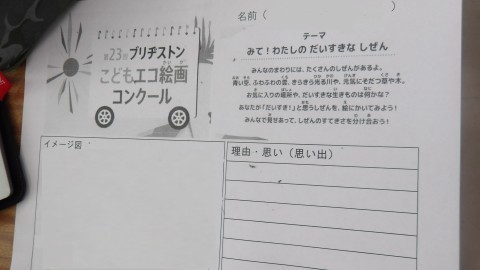 名前（　　　　　　　　）
第23回 ブリヂストン
こどもエコ絵画
コンクール
テーマ
みて！わたしの だいすきな しぜん
みんなのまわりには、たくさんのしぜんがあるよ。
青い空、ふわふわの雲、きらきら光る川や、元気にそだつ草や木。
お気に入りの場所や、だいすきな生きものは何かな？
あなたが「だいすき！」と思うしぜんを、絵にかいてみよう！
みんなで見せあって、しぜんのすてきさを分け合おう！
イメージ図
理由・思い（思い出）